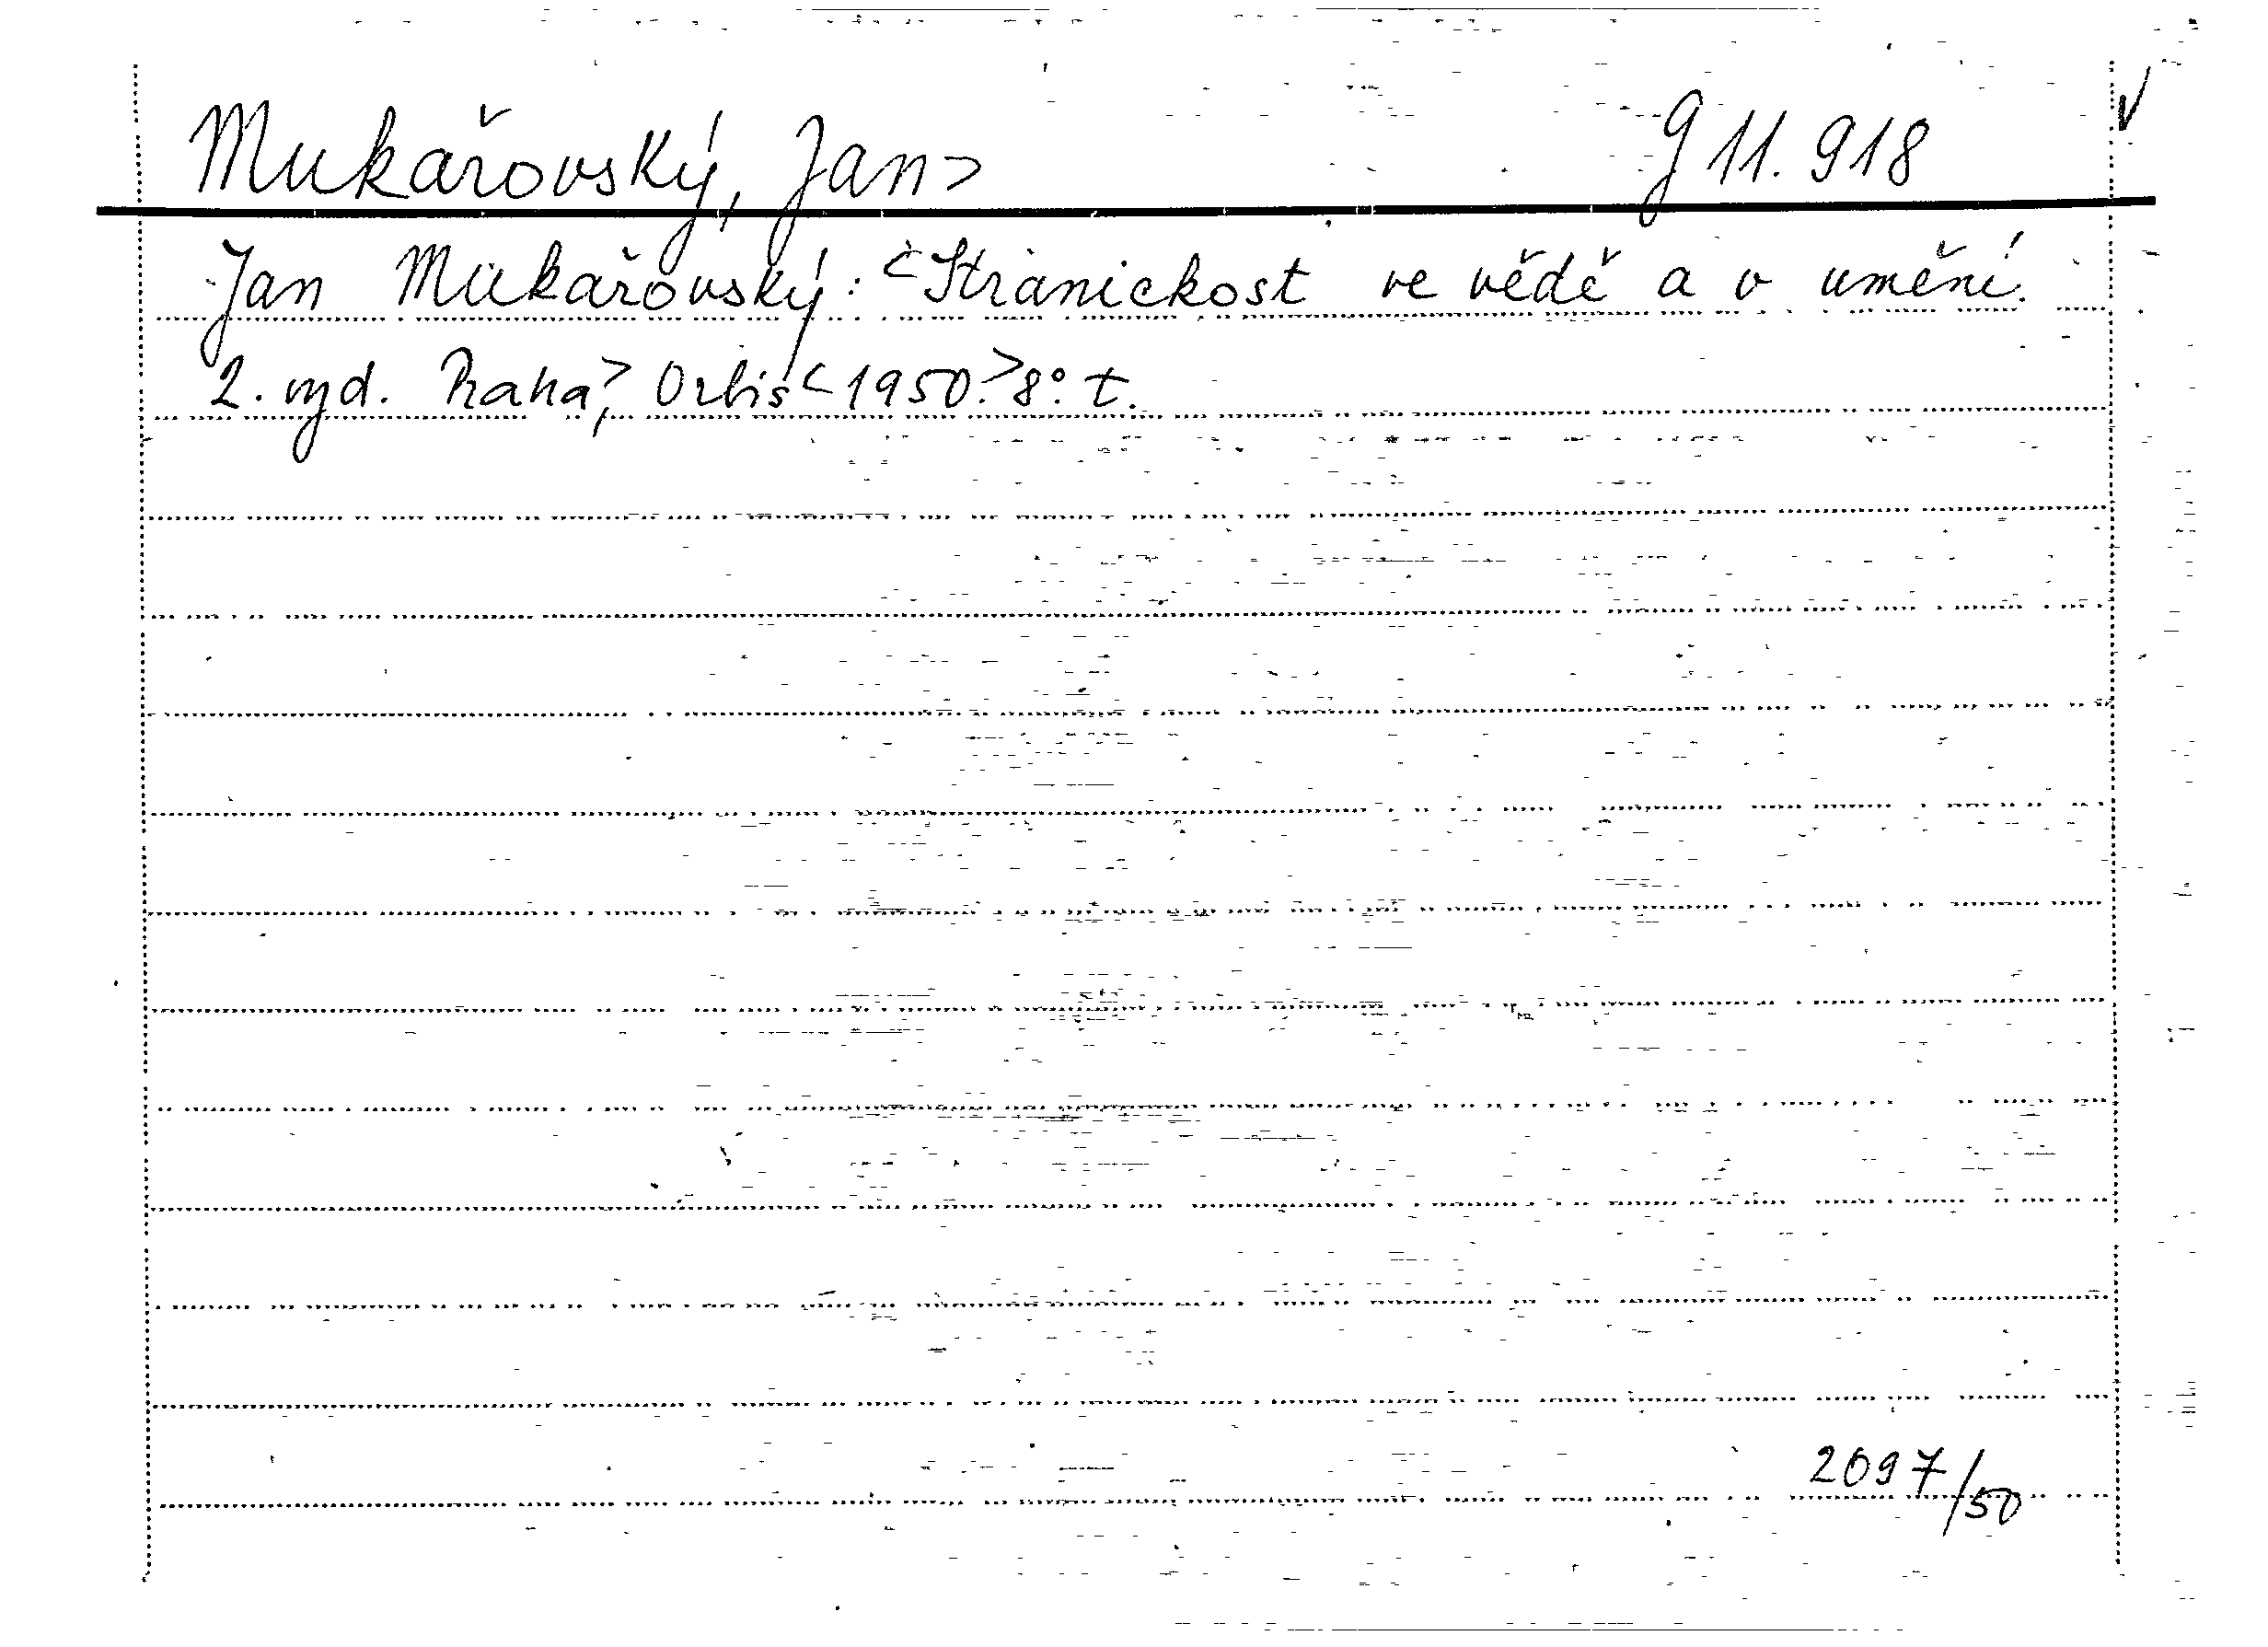 Mukařovský, Jan> g 11.918
Jan Mukařovský: <Stranickost ve vědě a v umění.
2. vyd. Praha>, Orbis <1950.> 8°. t.
2097/50